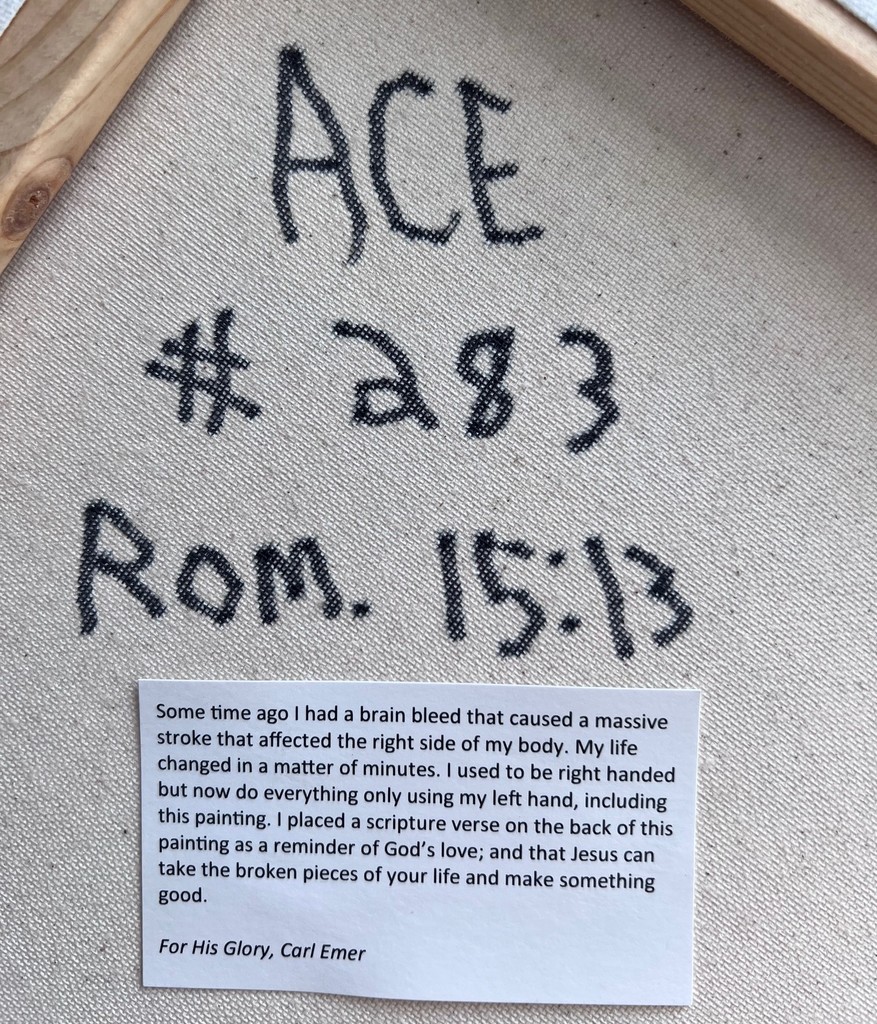 ACE
# 283
Rom. 15:13
Some time ago I had a brain bleed that caused a massive
stroke that affected the right side of my body. My life
changed in a matter of minutes. I used to be right handed
but now do everything only using my left hand, including
this painting. I placed a scripture verse on the back of this
painting as a reminder of God's love; and that Jesus can
take the broken pieces of your life and make something
good.
For His Glory, Carl Emer